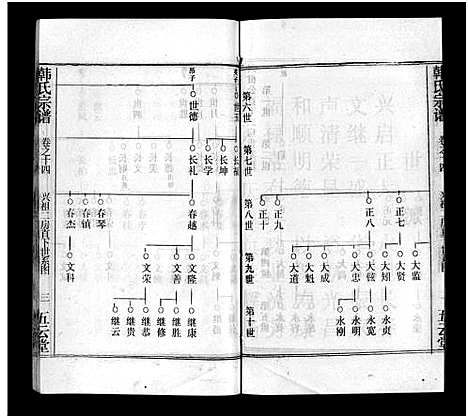 韩氏宗谱
卷之十四
五云堂
第六世
第七世
第八世
第九世
第十世
正七
正八
正九
正十
大监
大贤
大弦
大忠
大成
大魁
大道
永贞
永宽
永明
永刚
韩氏宗谱
卷之十四
兴祖二房直下世系图
三
五云堂
世德
长坤
长学
长礼
春越
春琴
春镇
春杰
文隆
文善
文荣
文科
继康
继胜
继修
继恭
继贵
继云